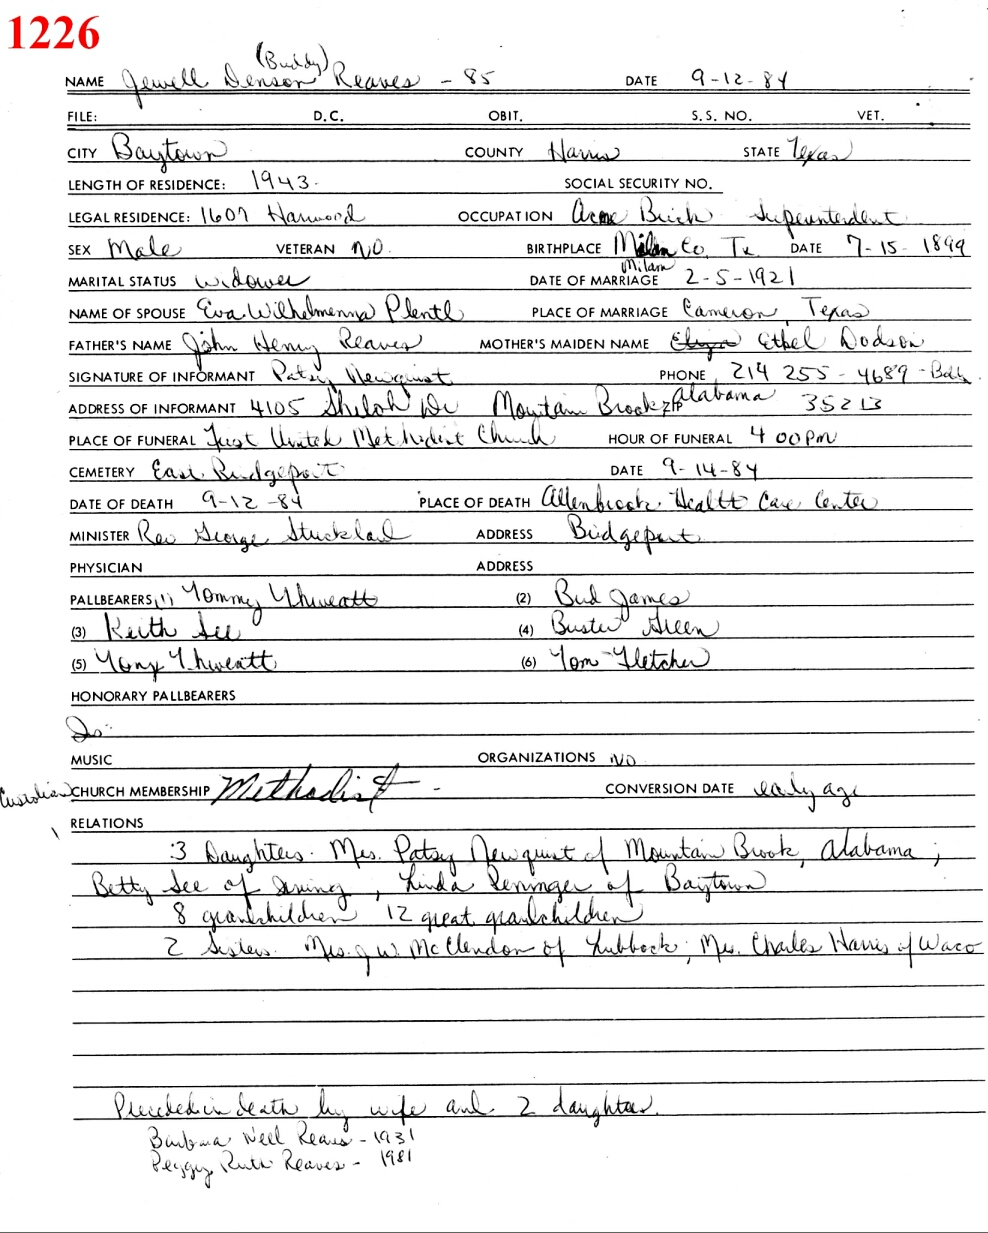 1226
(Buddy)
NAME Jewell Denson Reaves - 85 DATE 9-12-84
FILE: D.C. OBIT. S.S. NO. VET.
CITY Baytown COUNTY Harris STATE Texas
LENGTH OF RESIDENCE: 1943. SOCIAL SECURITY NO.
LEGAL RESIDENCE: 1607 Harwood OCCUPATION Acme Brick Superintendent
SEX Male VETERAN NO. BIRTHPLACE Milam Co, Tx DATE 7-15-1899
Milam
MARITAL STATUS widower DATE OF MARRIAGE 2-5-1921
NAME OF SPOUSE Eva Wilhelmenna Plentl PLACE OF MARRIAGE Cameron, Texas
FATHER'S NAME John Henry Reaves MOTHER'S MAIDEN NAME Ethel Dodson
SIGNATURE OF INFORMANT Patsy Newquist PHONE 214 255-4689 -Betty
ADDRESS OF INFORMANT 4105 Shiloh Dr Mountain Brook ZIP Alabama 35213
PLACE OF FUNERAL First United Methodist Church HOUR OF FUNERAL 4 00 PM
CEMETERY East Bridgeport DATE 9-14-84
DATE OF DEATH 9-12-84 PLACE OF DEATH Allenbrook Health Care Center
MINISTER Rev George Strickland ADDRESS Bridgeport
PHYSICIAN ADDRESS
PALLBEARERS (1) Tommy Thweatt (2) Bud James
(3) Keith See (4) Buster Green
(5) Tony Thweatt (6) Tom Fletcher
HONORARY PALLBEARERS
MUSIC ORGANIZATIONS NO
Custodian CHURCH MEMBERSHIP Methodist - CONVERSION DATE early age
RELATIONS
3 Daughters. Mrs. Patsy Newquist of Mountain Brook, Alabama;
Betty See of Irving, Linda Reninger of Baytown
8 grandchildren 12 great grandchildren
2 Sisters. Mrs. J W. McClendon of Lubbock; Mrs. Charles Harris of Waco
Preceded in death by wife and 2 daughters.
Barbara Nell Reaves - 1931
Peggy Ruth Reaves - 1981